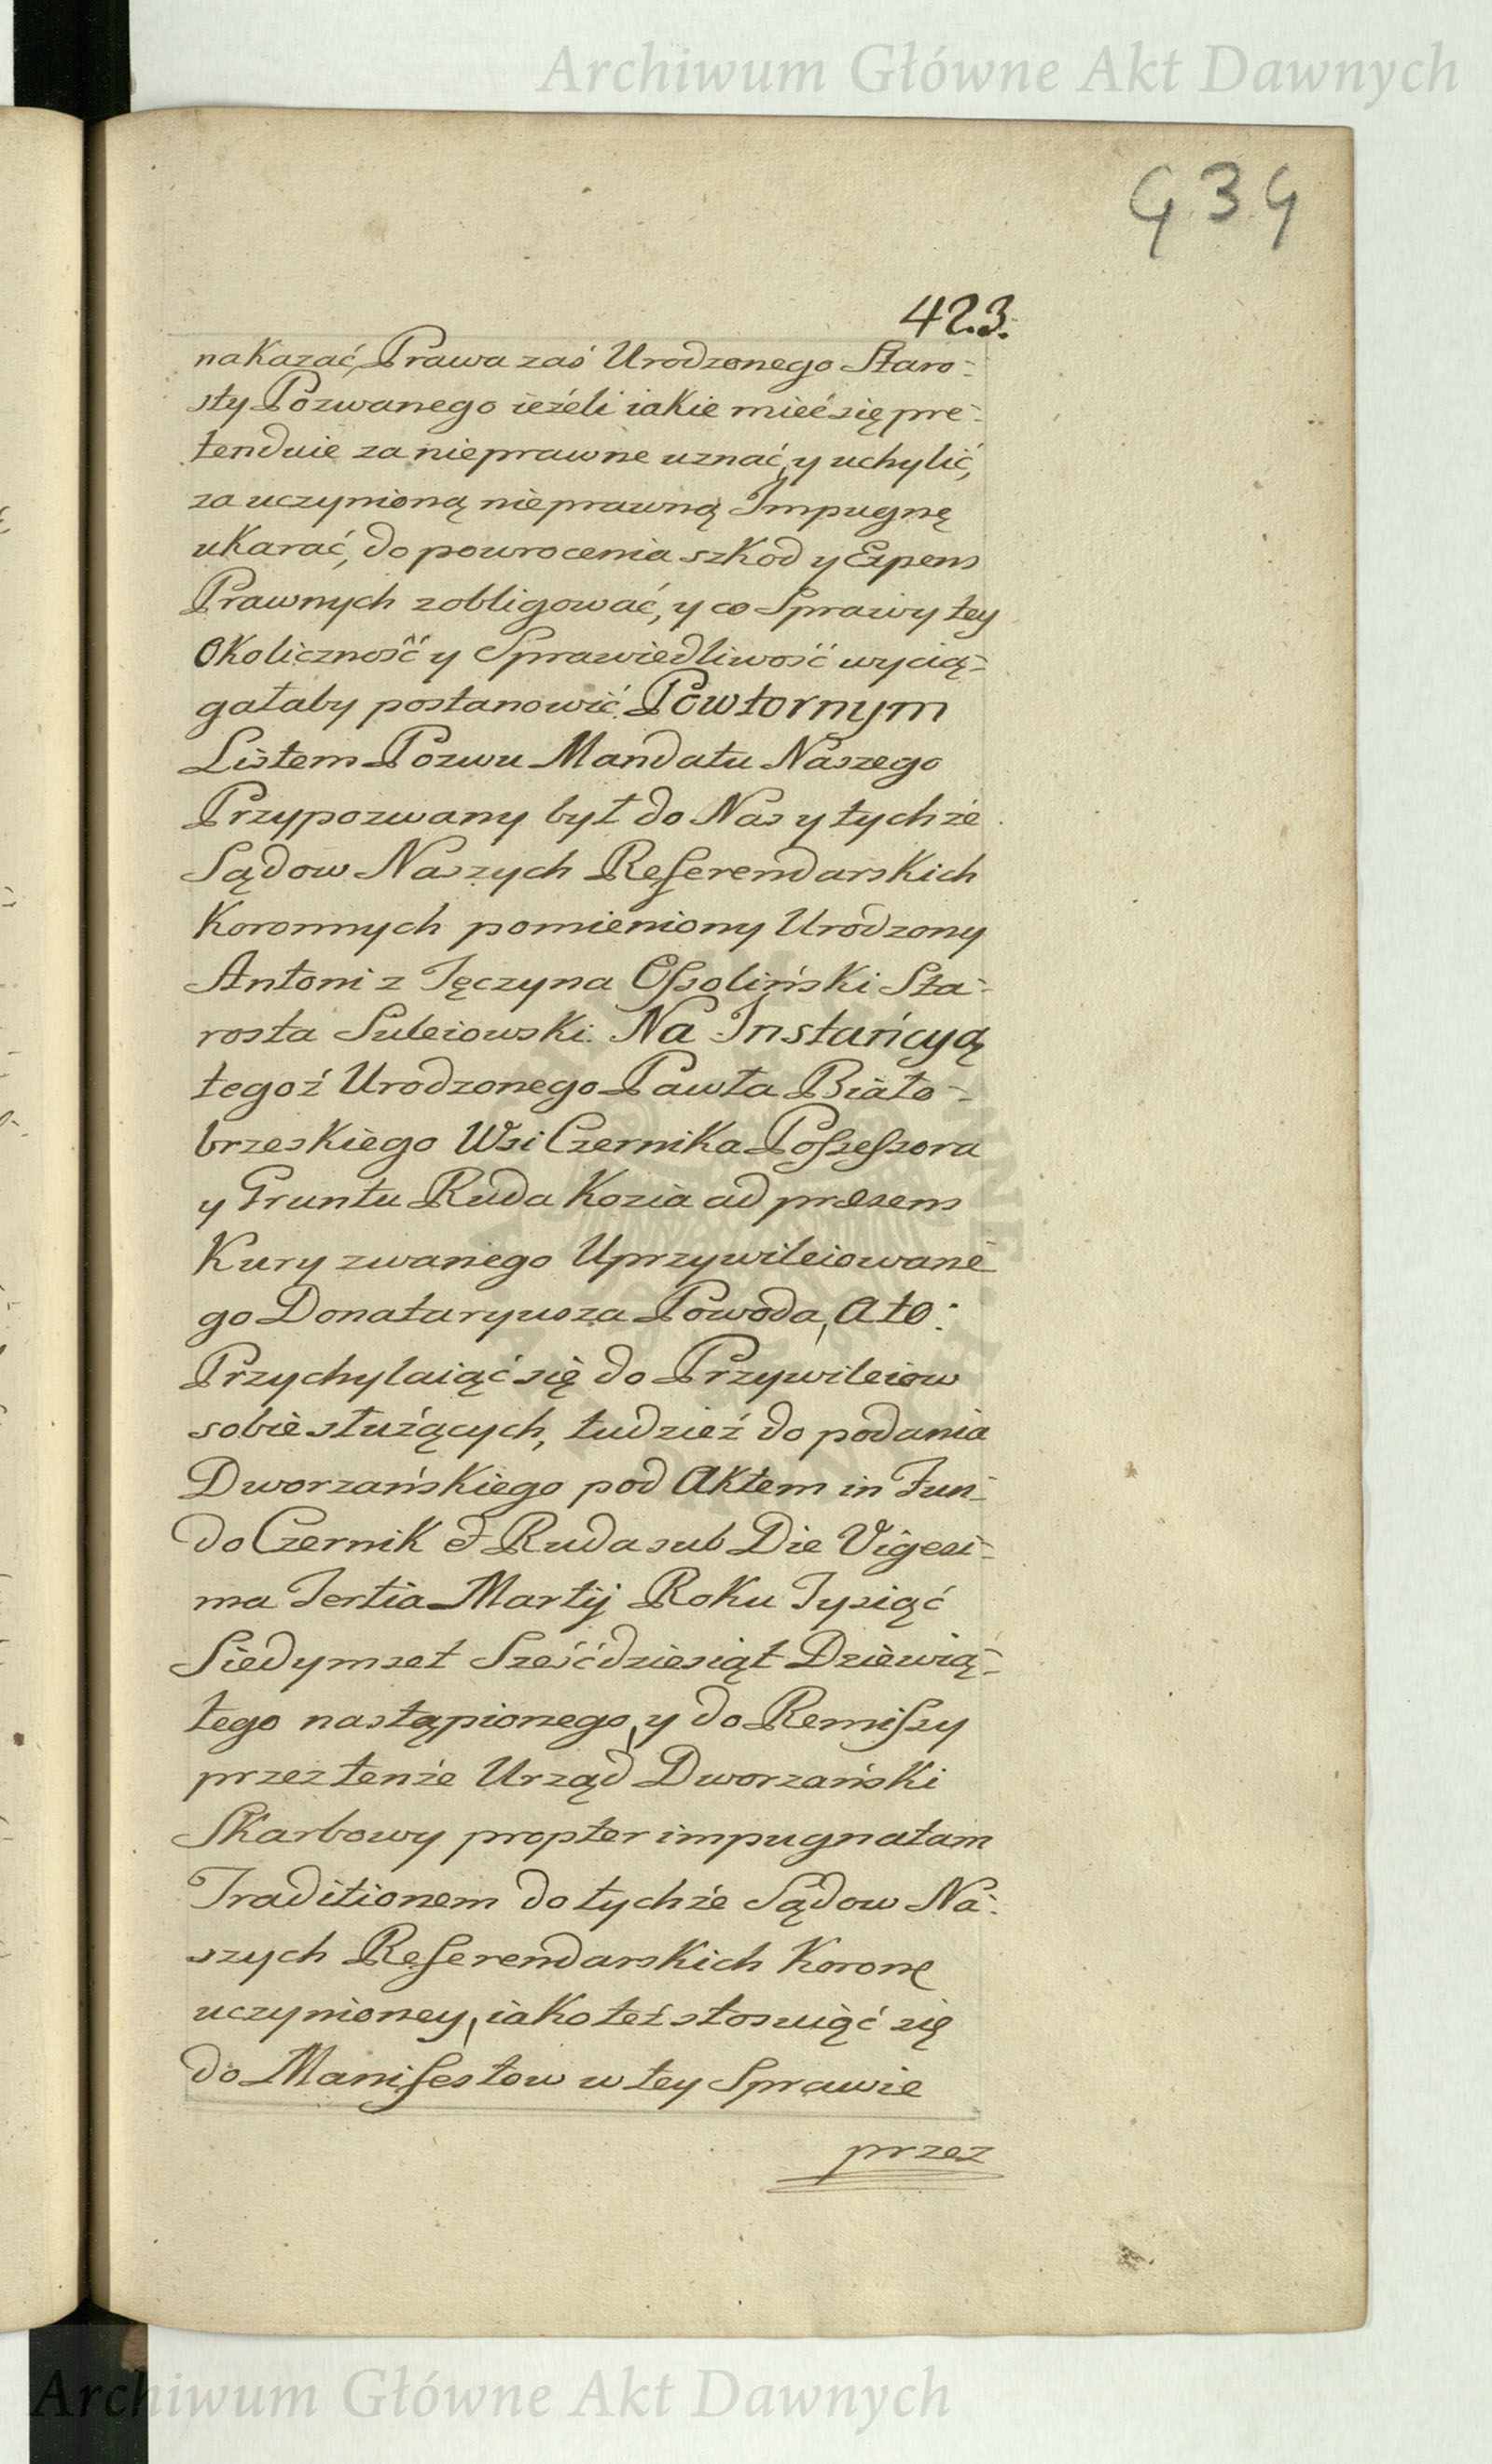 Archiwum Główne Akt Dawnych
439
423.
nakazać, Prawa zaś Urodzonego Staro-
sty Pozwanego ieżeli iakie mieć się pre-
tenduie za nieprawne uznać, y uchylić,
za uczynioną nieprawną Impugnę
ukarać, do powrocenia szkod y Expens
Prawnych zobligować, y co Sprawy tey
Okoliczność y Sprawiedliwość wycią-
gałaby postanowić. Powtornym
Listem Pozwu Mandatu Naszego
Przypozwany był do Nas y tychże
Sądow Naszych Referendarskich
Koronnych pomieniony Urodzony
Antoni z Tęczyna Ossoliński Sta-
rosta Suleiowski. Na Instańcyą
tegoż Urodzonego Pawła Biało-
brzeskiego Wsi Czernika Possessora
y Gruntu Ruda Kozia ad præsens
Kury zwanego Uprzywileiowane
go Donataryusza Powoda, Ato:
Przychylaiąć się do Przywileiow
sobie służących, tudzież do podania
Dworzańskiego pod Aktem in Fun-
do Czernik et Ruda sub Die Vigesi-
ma Tertia Martij Roku Tysiąć
Siedymset Sześćdziesiąt Dziewią-
tego nastąpionego, y do Remissy
przez tenże Urząd Dworzański
Skarbowy propter impugnatam
Traditionem do tychże Sądow Na-
szych Referendarskich Koronę
uczynioney, iako też stosuiąć się
do Manifestow w tey Sprawie
przez
Archiwum Główne Akt Dawnych